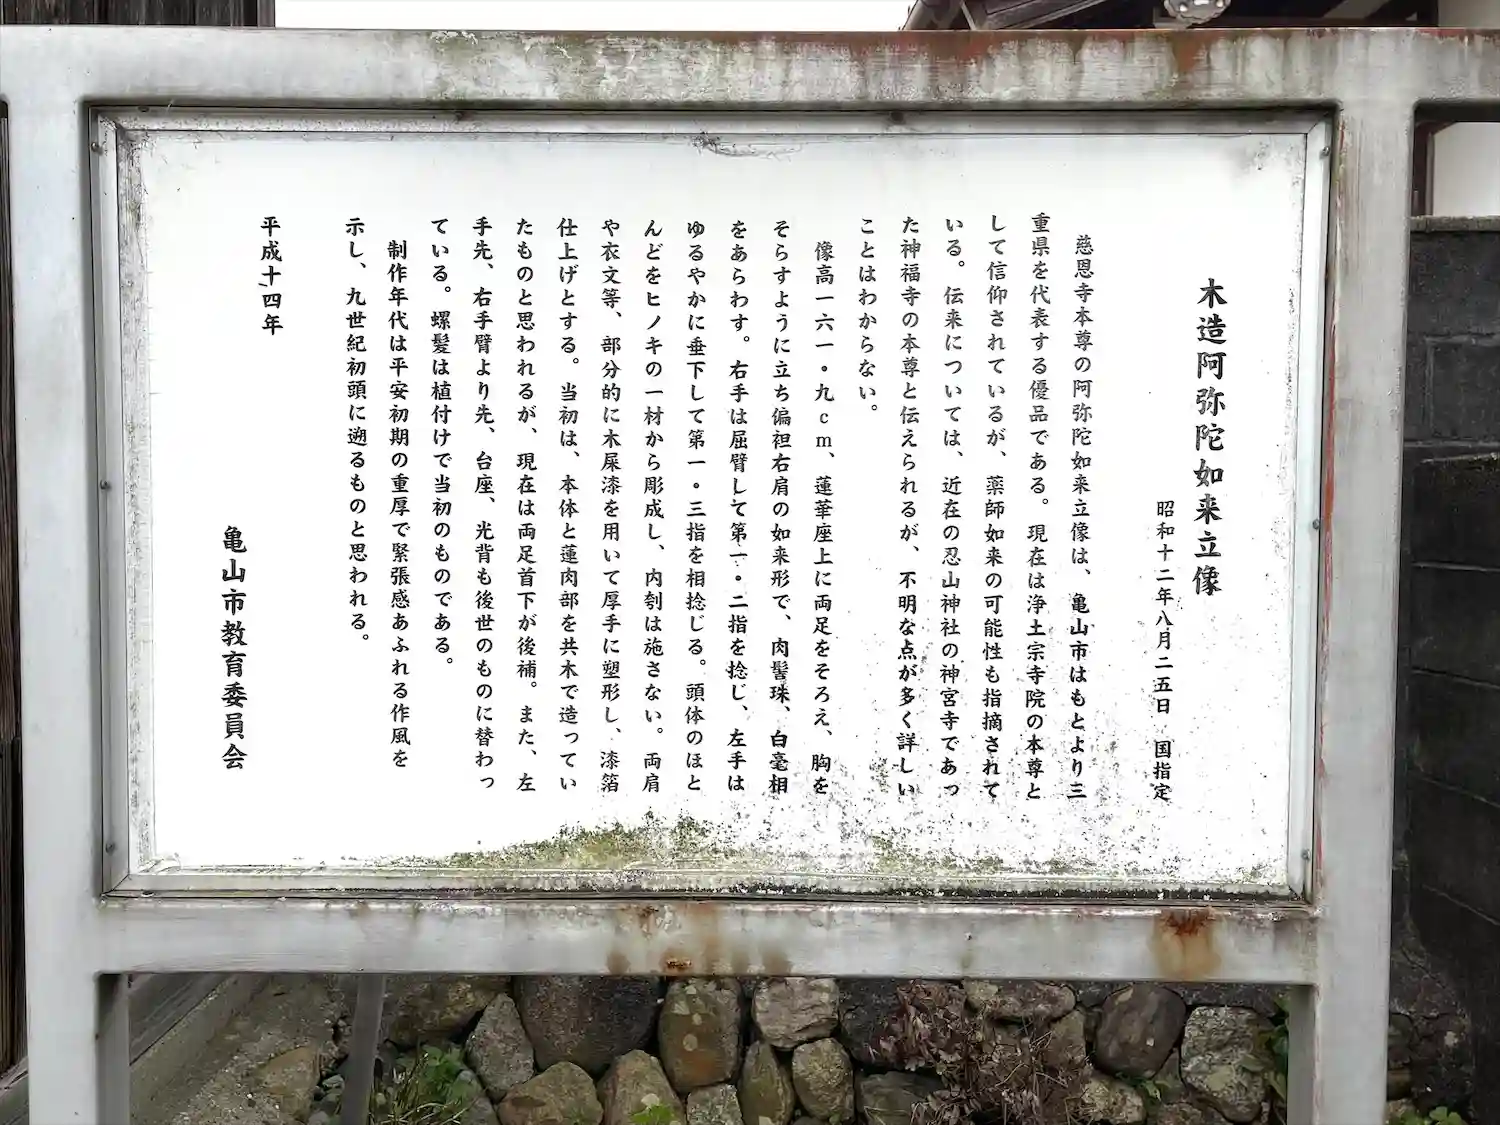 木造阿弥陀如来立像
昭和十二年八月二五日　国指定
慈恩寺本尊の阿弥陀如来立像は、亀山市はもとより三
重県を代表する優品である。現在は浄土宗寺院の本尊と
して信仰されているが、薬師如来の可能性も指摘されて
いる。伝来については、近在の忍山神社の神宮寺であっ
た神福寺の本尊と伝えられるが、不明な点が多く詳しい
ことはわからない。
像高一六一・九cm、蓮華座上に両足をそろえ、胸を
そらすように立ち偏袒右肩の如来形で、肉髻珠、白毫相
をあらわす。右手は屈臂して第一・二指を捻じ、左手は
ゆるやかに垂下して第一・三指を相捻じる。頭体のほと
んどをヒノキの一材から彫成し、内刳は施さない。両肩
や衣文等、部分的に木屎漆を用いて厚手に塑形し、漆箔
仕上げとする。当初は、本体と蓮肉部を共木で造ってい
たものと思われるが、現在は両足首下が後補。また、左
手先、右手臂より先、台座、光背も後世のものに替わっ
ている。螺髪は植付けで当初のものである。
制作年代は平安初期の重厚で緊張感あふれる作風を
示し、九世紀初頭に遡るものと思われる。
平成十四年
亀山市教育委員会